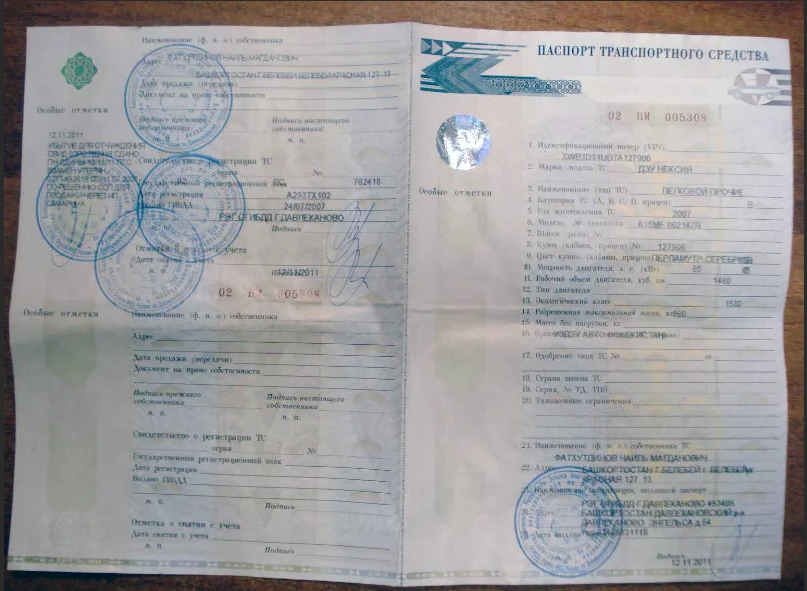 Наименование (ф. и. о.) собственника
ФАТХУТДИНОВ НАИЛЬ МАГДАНОВИЧ
Адрес
БАШКОРТОСТАН Г.БЕЛЕБЕЙ БЕЛЕБЕЙ КРАСНАЯ 127 13
Дата продажи (передачи)
Документ на право собственности
Особые отметки
Подпись прежнего собственника
Подпись настоящего собственника
м. п.
м. п.
12.11.2011
УБЫТИЕ ДЛЯ ОТЧУЖДЕНИЯ
Свидетельство о регистрации ТС
серия №
782416
Государственный регистрационный знак
А293ТХ102
24/07/2007
Выдано ГИБДД
РЭГ ОГИБДД Г.ДАВЛЕКАНОВО
м. п.
Подпись
Отметка о снятии с учета
Дата снятия с учета
12/11/2011
м. п.
02 НМ 005308
Особые отметки
Наименование (ф. и. о.) собственника
Адрес
Дата продажи (передачи)
Документ на право собственности
Подпись прежнего собственника
Подпись настоящего собственника
м. п.
м. п.
Свидетельство о регистрации ТС
серия №
Государственный регистрационный знак
Дата регистрации
Выдано ГИБДД
м. п.
Подпись
Отметка о снятии с учета
Дата снятия с учета
м. п.
Подпись
ПАСПОРТ ТРАНСПОРТНОГО СРЕДСТВА
02 НМ 005308
Особые отметки
1. Идентификационный номер (VIN)
2. Марка, модель ТС ДЭУ НЕКСИЯ
3. Наименование (тип ТС) ЛЕГКОВОЙ ПРОЧИЕ
4. Категория ТС (А, В, С, D, прицеп) В
5. Год изготовления ТС 2007
6. Модель, № двигателя A15MF
7. Шасси (рама) №
8. Кузов (кабина, прицеп) № 127906
9. Цвет кузова (кабины, прицепа)
10. Мощность двигателя, л. с. (кВт) 85
11. Рабочий объем двигателя, куб. см
12. Тип двигателя
13. Экологический класс
14. Разрешенная максимальная масса, кг
15. Масса без нагрузки, кг
16. УЗДЭУ АВТО (УЗБЕКИСТАН)
17. Одобрение типа ТС № от
18. Страна вывоза ТС
19. Серия, № ТД, ТПО
20. Таможенные ограничения
21. Наименование (ф. и. о.) собственника ТС
ФАТХУТДИНОВ НАИЛЬ МАГДАНОВИЧ
22. Адрес БАШКОРТОСТАН Г.БЕЛЕБЕЙ
КРАСНАЯ 127 13
23. Наименование организации, выдавшей паспорт
РЭГ ОГИБДД Г.ДАВЛЕКАНОВО
БАШКОРТОСТАН ДАВЛЕКАНОВСКИЙ р-н
ДАВЛЕКАНОВО ЭНГЕЛЬСА д.54
Подпись
12.11.2011